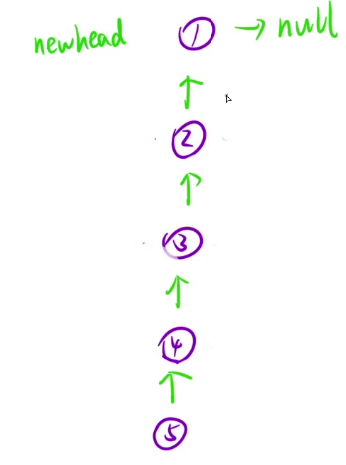 newhead ① → null
↑
②
↑
③
↑
④
↑
⑤